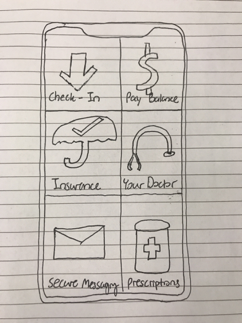 Check-In
Pay Balance
Insurance
Your Doctor
Secure Messaging
Prescriptions